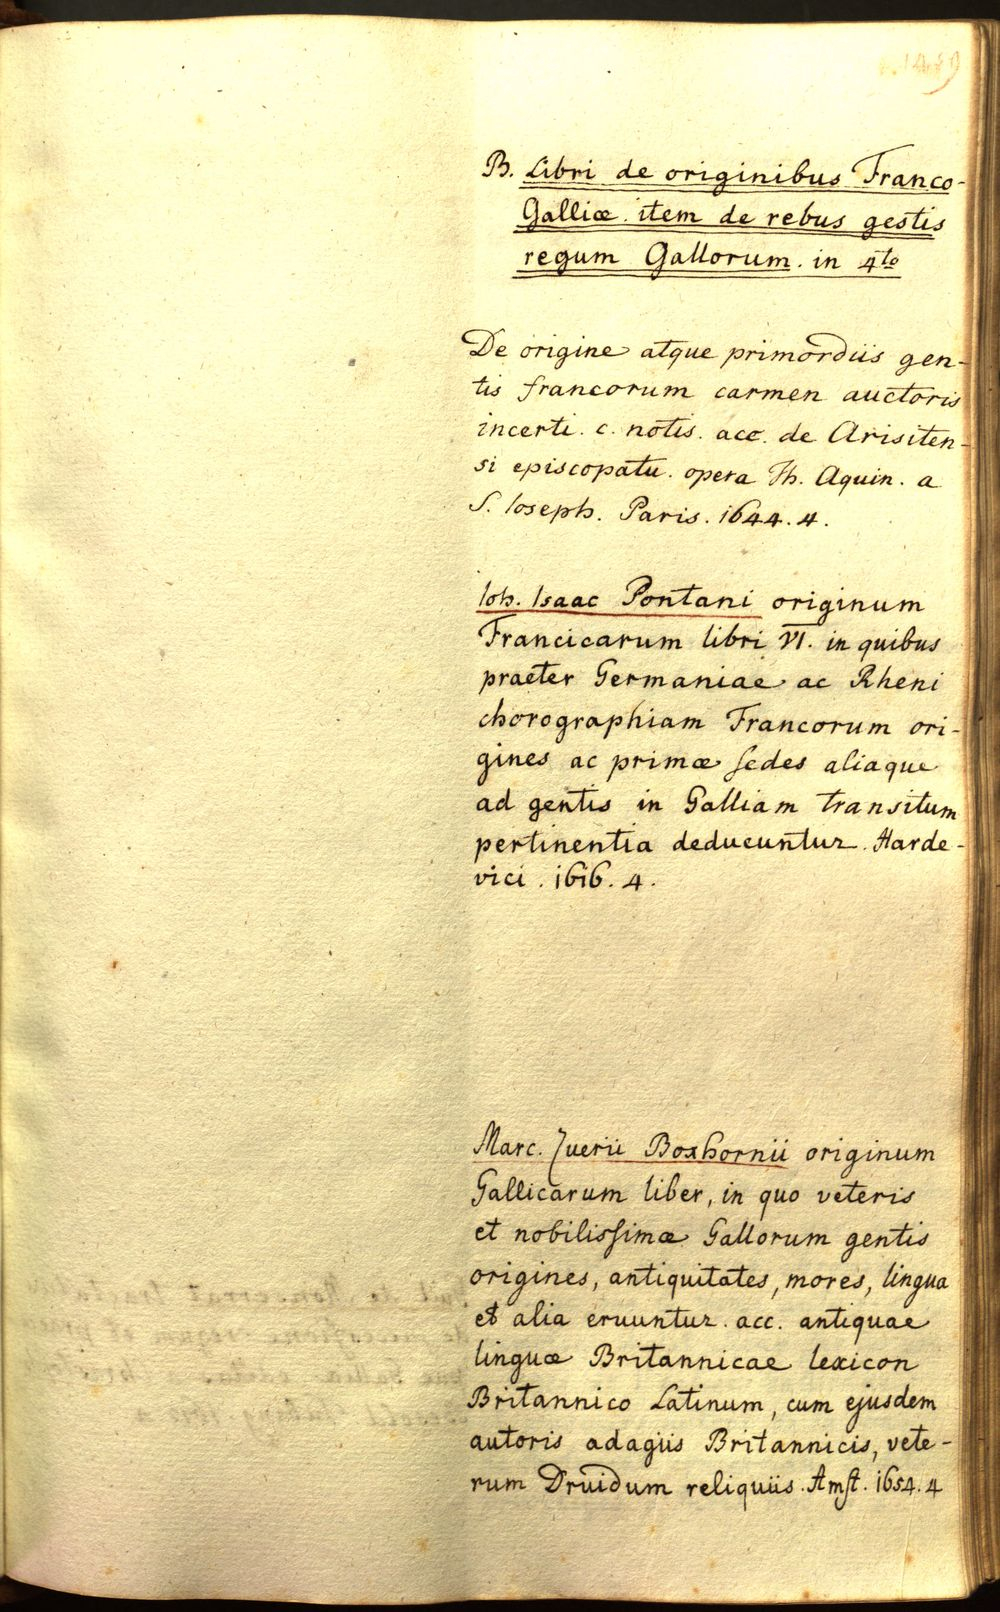 B. Libri de originibus Franco-
Galliæ. item de rebus gestis
regum Gallorum. in 4to
De origine atque primordiis gen-
tis francorum carmen auctoris
incerti. c. notis. acc. de Arisiten-
si episcopatu. opera Th. Aquin. a
S. Ioseph. Paris. 1644. 4.
Ioh. Isaac Pontani originum
Francicarum libri VI. in quibus
praeter Germaniae ac Rheni
chorographiam Francorum ori-
gines ac primæ sedes aliaque
ad gentis in Galliam transitum
pertinentia deducuntur. Harde-
vici. 1616. 4.
Marc. Zuerii Boxhornii originum
Gallicarum liber, in quo veteris
et nobilissimæ Gallorum gentis
origines, antiquitates, mores, lingua
et alia eruuntur. acc. antiquae
linguæ Britannicae lexicon
Britannico Latinum, cum ejusdem
autoris adagiis Britannicis, vete-
rum Druidum reliquiis. Amst. 1654. 4